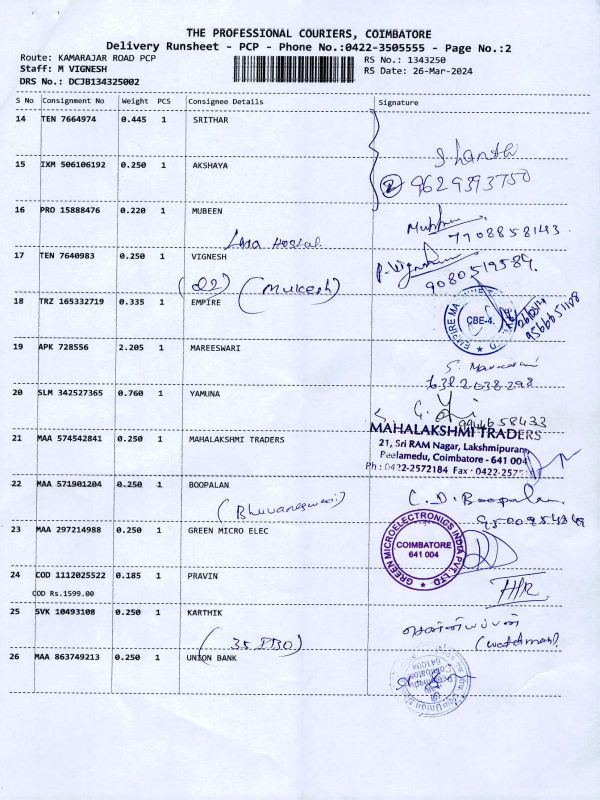 THE PROFESSIONAL COURIERS, COIMBATORE
Delivery Runsheet - PCP - Phone No.:0422-3505555 - Page No.:2
Route: KAMARAJAR ROAD PCP
RS No.: 1343250
Staff: M VIGNESH
RS Date: 26-Mar-2024
DRS No.: DCJB134325002
S No Consignment No Weight PCS Consignee Details Signature
14 TEN 7664974 0.445 1 SRITHAR
Shanthi
15 IXM 506106192 0.250 1 AKSHAYA
② 9629393750
16 PRO 15888476 0.220 1 MUBEEN
7708858143
17 TEN 7640983 0.250 1 VIGNESH
P. Vignesh
9080519589.
(22) (Mukesh)
18 TRZ 165332719 0.335 1 EMPIRE
CBE-4.
19 APK 728556 2.205 1 MAREESWARI
6382638298
20 SLM 342527365 0.760 1 YAMUNA
21 MAA 574542841 0.250 1 MAHALAKSHMI TRADERS
MAHALAKSHMI TRADERS
21, Sri RAM Nagar, Lakshmipuram,
Peelamedu, Coimbatore - 641 004
Ph : 0422-2572184 Fax - 0422-2575
22 MAA 571901204 0.250 1 BOOPALAN
(Bhuvaneswari)
C. D. Boopalan
23 MAA 297214988 0.250 1 GREEN MICRO ELEC
GREEN MICROELECTRONICS INDIA PVT. LTD.
COIMBATORE
641 004
24 COD 1112025522 0.185 1 PRAVIN
COD Rs.1599.00
25 SVK 10493108 0.250 1 KARTHIK
(watchman)
26 MAA 863749213 0.250 1 UNION BANK